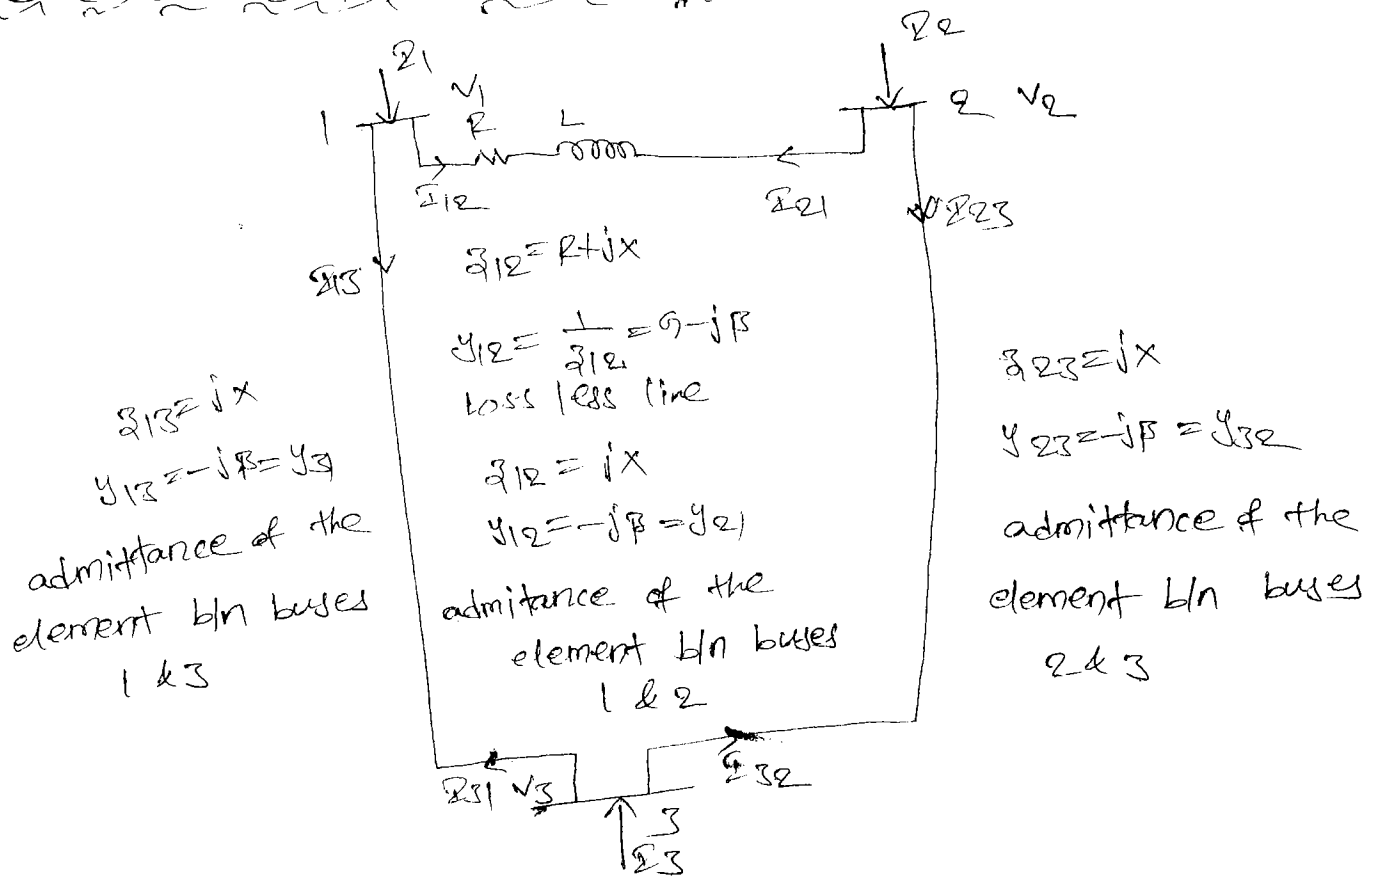 I1
I2
V1
1
R
L
2 V2
I12
I21
I23
I13
z12 = R+jx
y12 = 1/z12 = G-jB
loss less line
z12 = jx
y12 = -jB = y21
admitance of the
element b/n buses
1 & 2
z13 = jx
y13 = -jB = y31
admittance of the
element b/n buses
1 & 3
z23 = jx
y23 = -jB = y32
admittance of the
element b/n buses
2 & 3
I31 V3
I32
3
I3